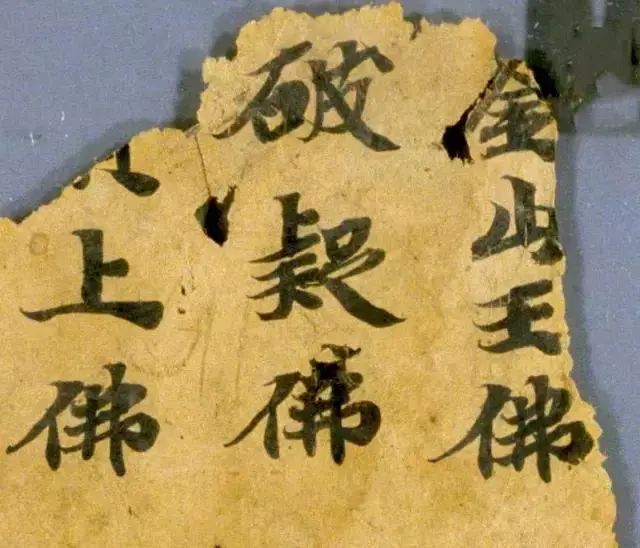 金山王佛
破疑佛
上佛